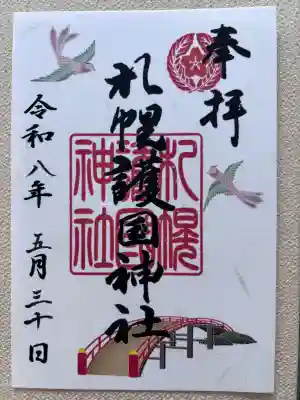 奉拝
札幌護國神社
札幌護國神社
令和八年 五月三十日